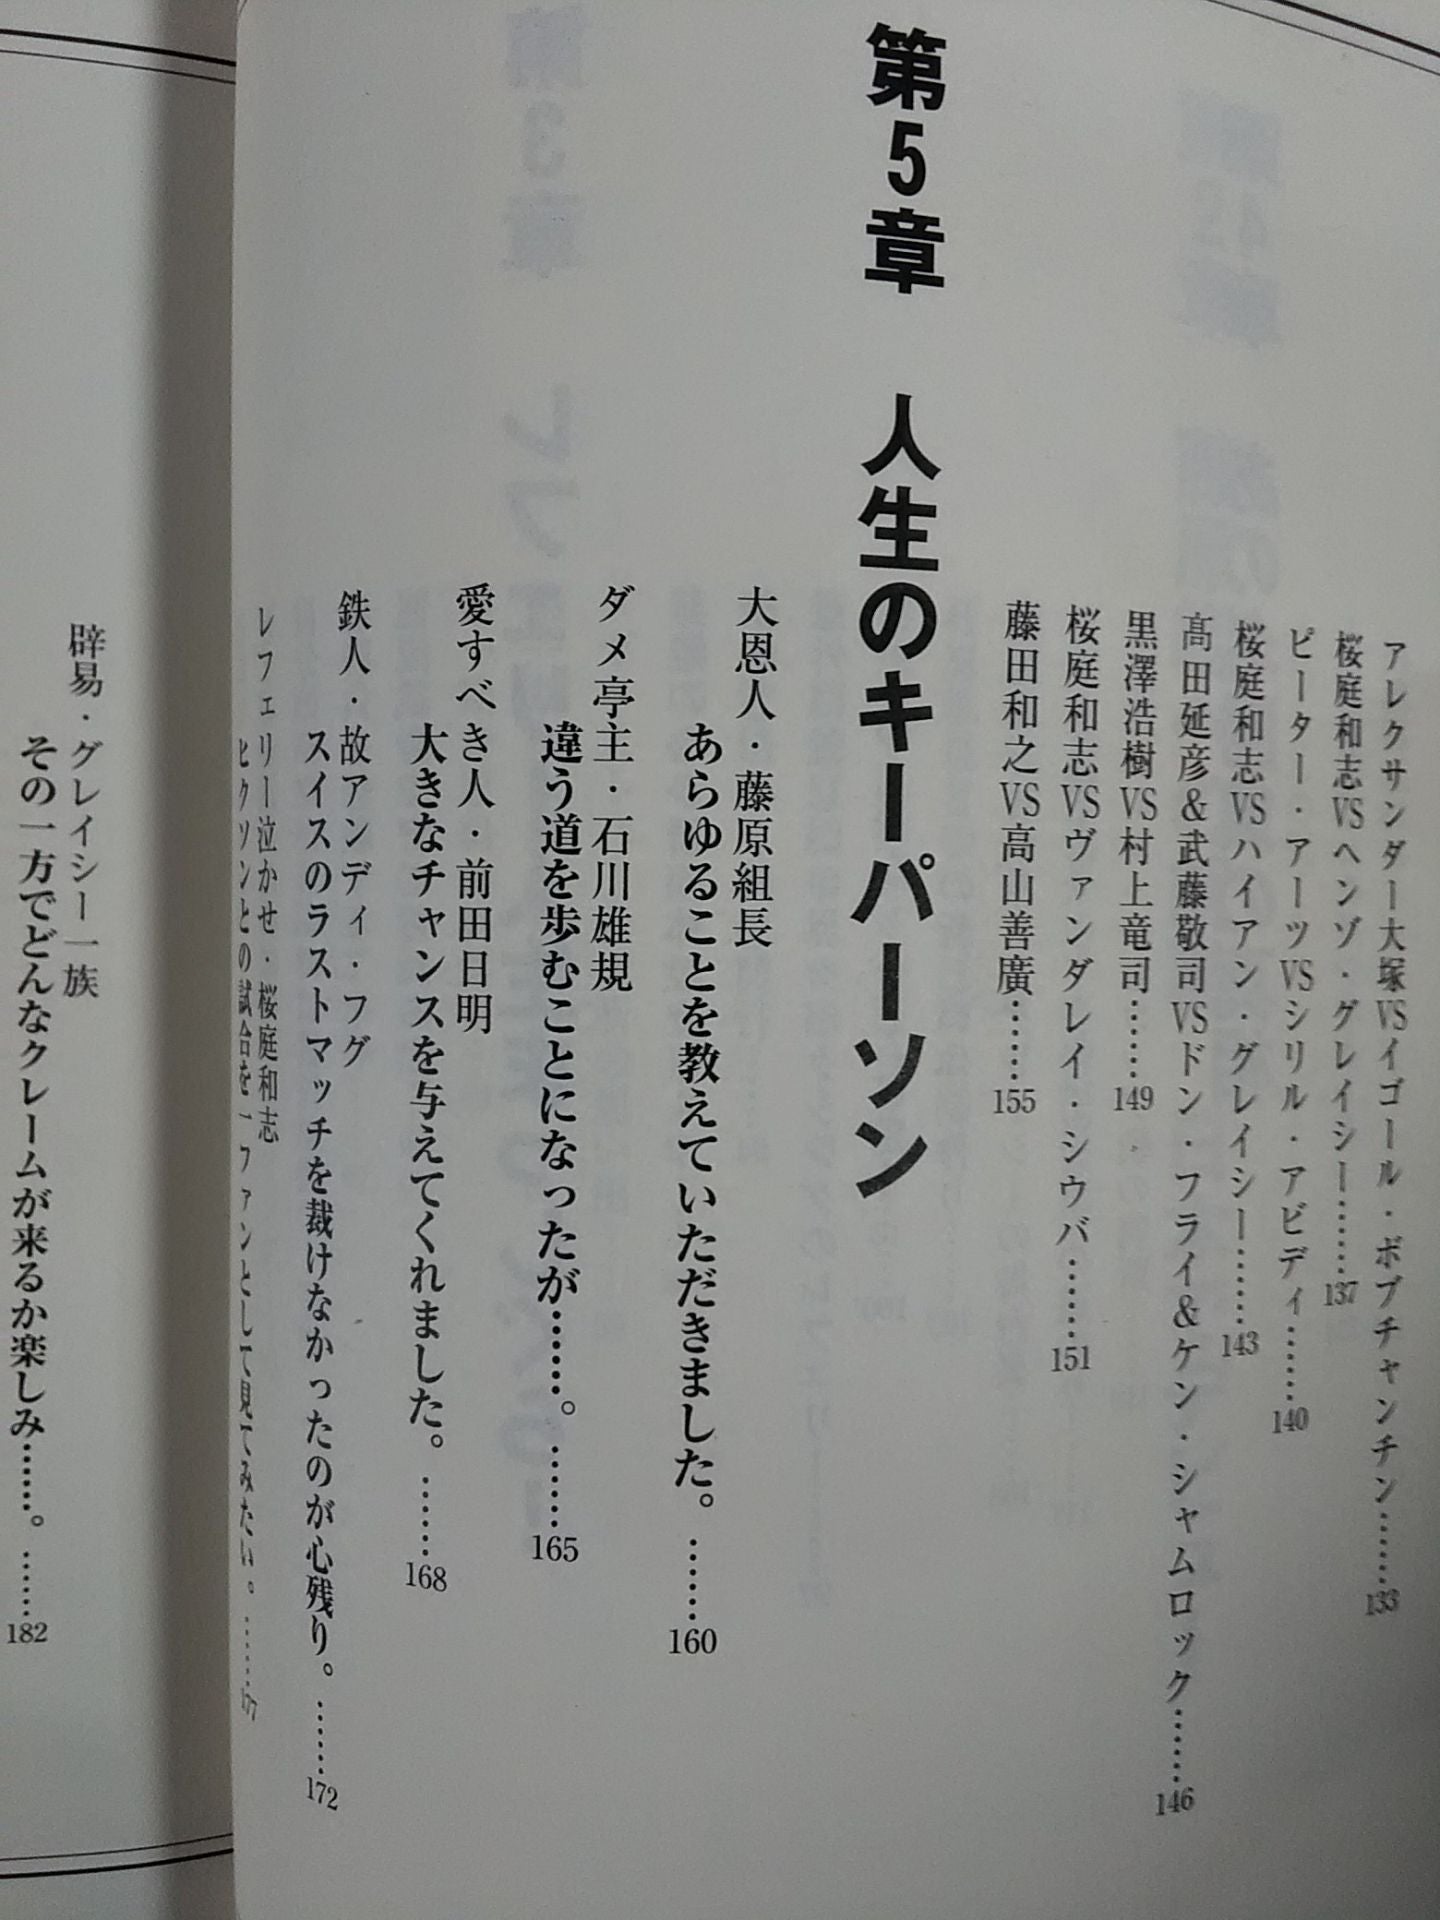 アレクサンダー大塚VSイゴール・ボブチャンチン……133
桜庭和志VSヘンゾ・グレイシー……137
ピーター・アーツVSシリル・アビディ……140
桜庭和志VSハイアン・グレイシー……143
髙田延彦&武藤敬司VSドン・フライ&ケン・シャムロック……146
黒澤浩樹VS村上竜司……149
桜庭和志VSヴァンダレイ・シウバ……151
藤田和之VS高山善廣……155
第5章 人生のキーパーソン
大恩人・藤原組長
あらゆることを教えていただきました。……160
ダメ亭主・石川雄規
違う道を歩むことになったが……。……165
愛すべき人・前田日明
大きなチャンスを与えてくれました。……168
鉄人・故アンディ・フグ
スイスのラストマッチを裁けなかったのが心残り。……172
レフェリー泣かせ・桜庭和志
ヒクソンとの試合を一ファンとして見てみたい。……177
辟易・グレイシー一族
その一方でどんなクレームが来るか楽しみ……。……182